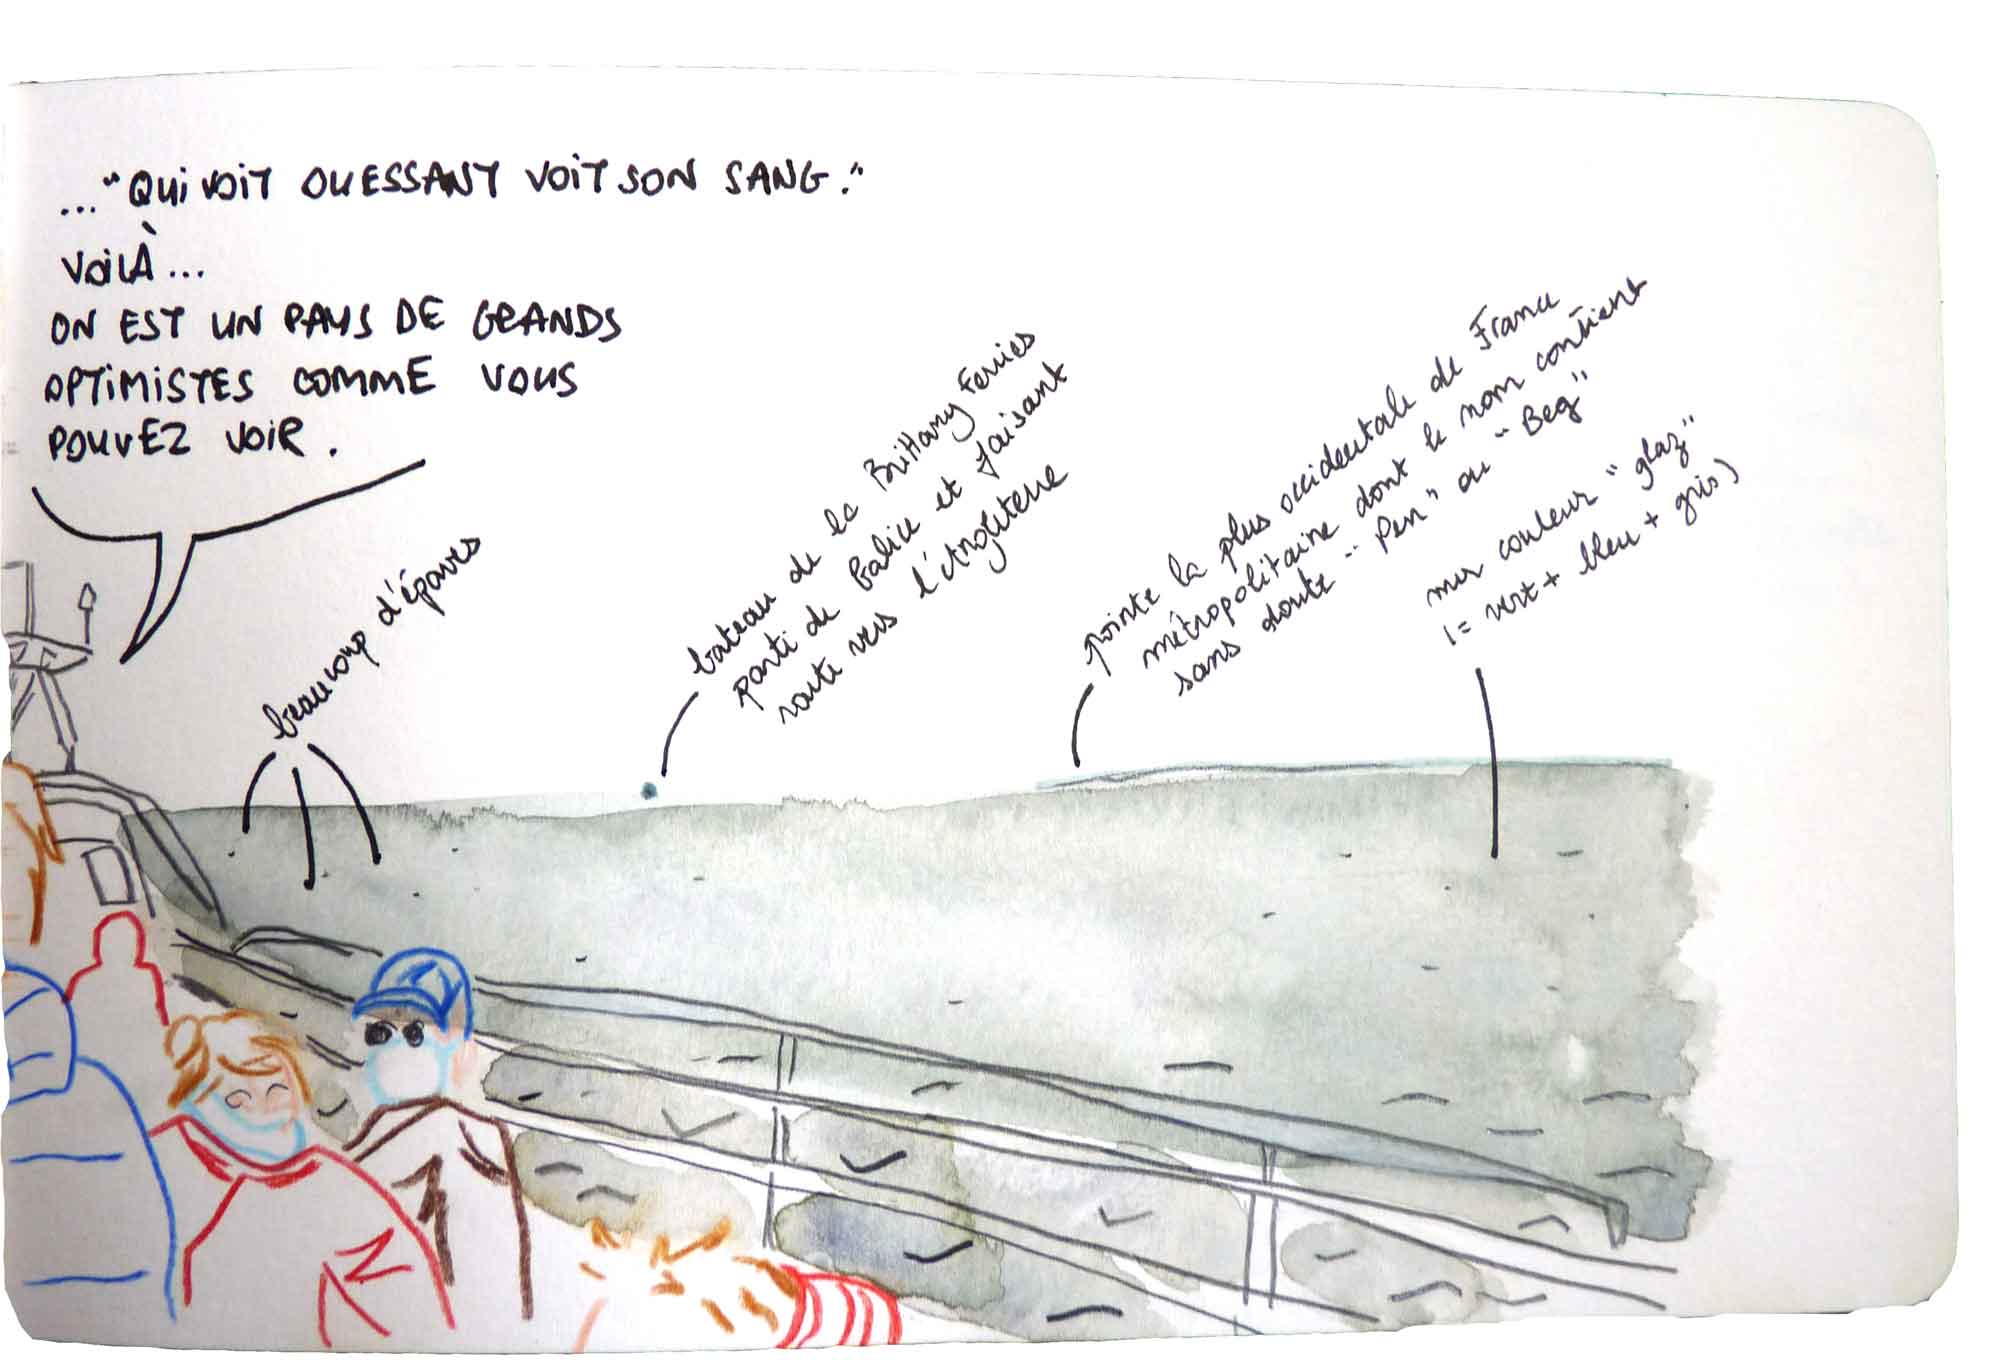 ..."QUI VOIT OUESSANT VOIT SON SANG."
VOILÀ...
ON EST UN PAYS DE GRANDS
OPTIMISTES COMME VOUS
POUVEZ VOIR.
beaucoup d'épaves
bateau de la Brittany Ferries
parti de Galice et faisant
route vers l'Angleterre
pointe la plus occidentale de France
métropolitaine dont le nom contient
sans doute "Pen" ou "Beg"
mer couleur "glaz"
(= vert + bleu + gris)